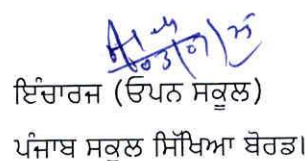 ਇੰਚਾਰਜ (ਓਪਨ ਸਕੂਲ)
ਪੰਜਾਬ ਸਕੂਲ ਸਿੱਖਿਆ ਬੋਰਡ।